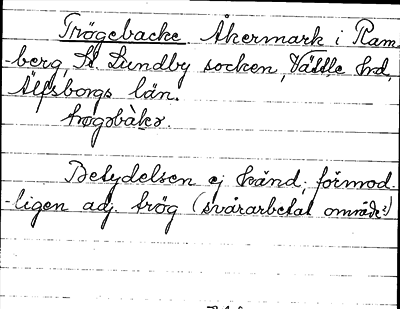 Trögebacke Åkermark i Ram-
-berg, St. Lundby socken, Vättle hd,
Älfsborgs län.
trøgəbàkə.
Betydelsen ej känd; förmod.
-ligen adj. trög (svårarbetat område?)